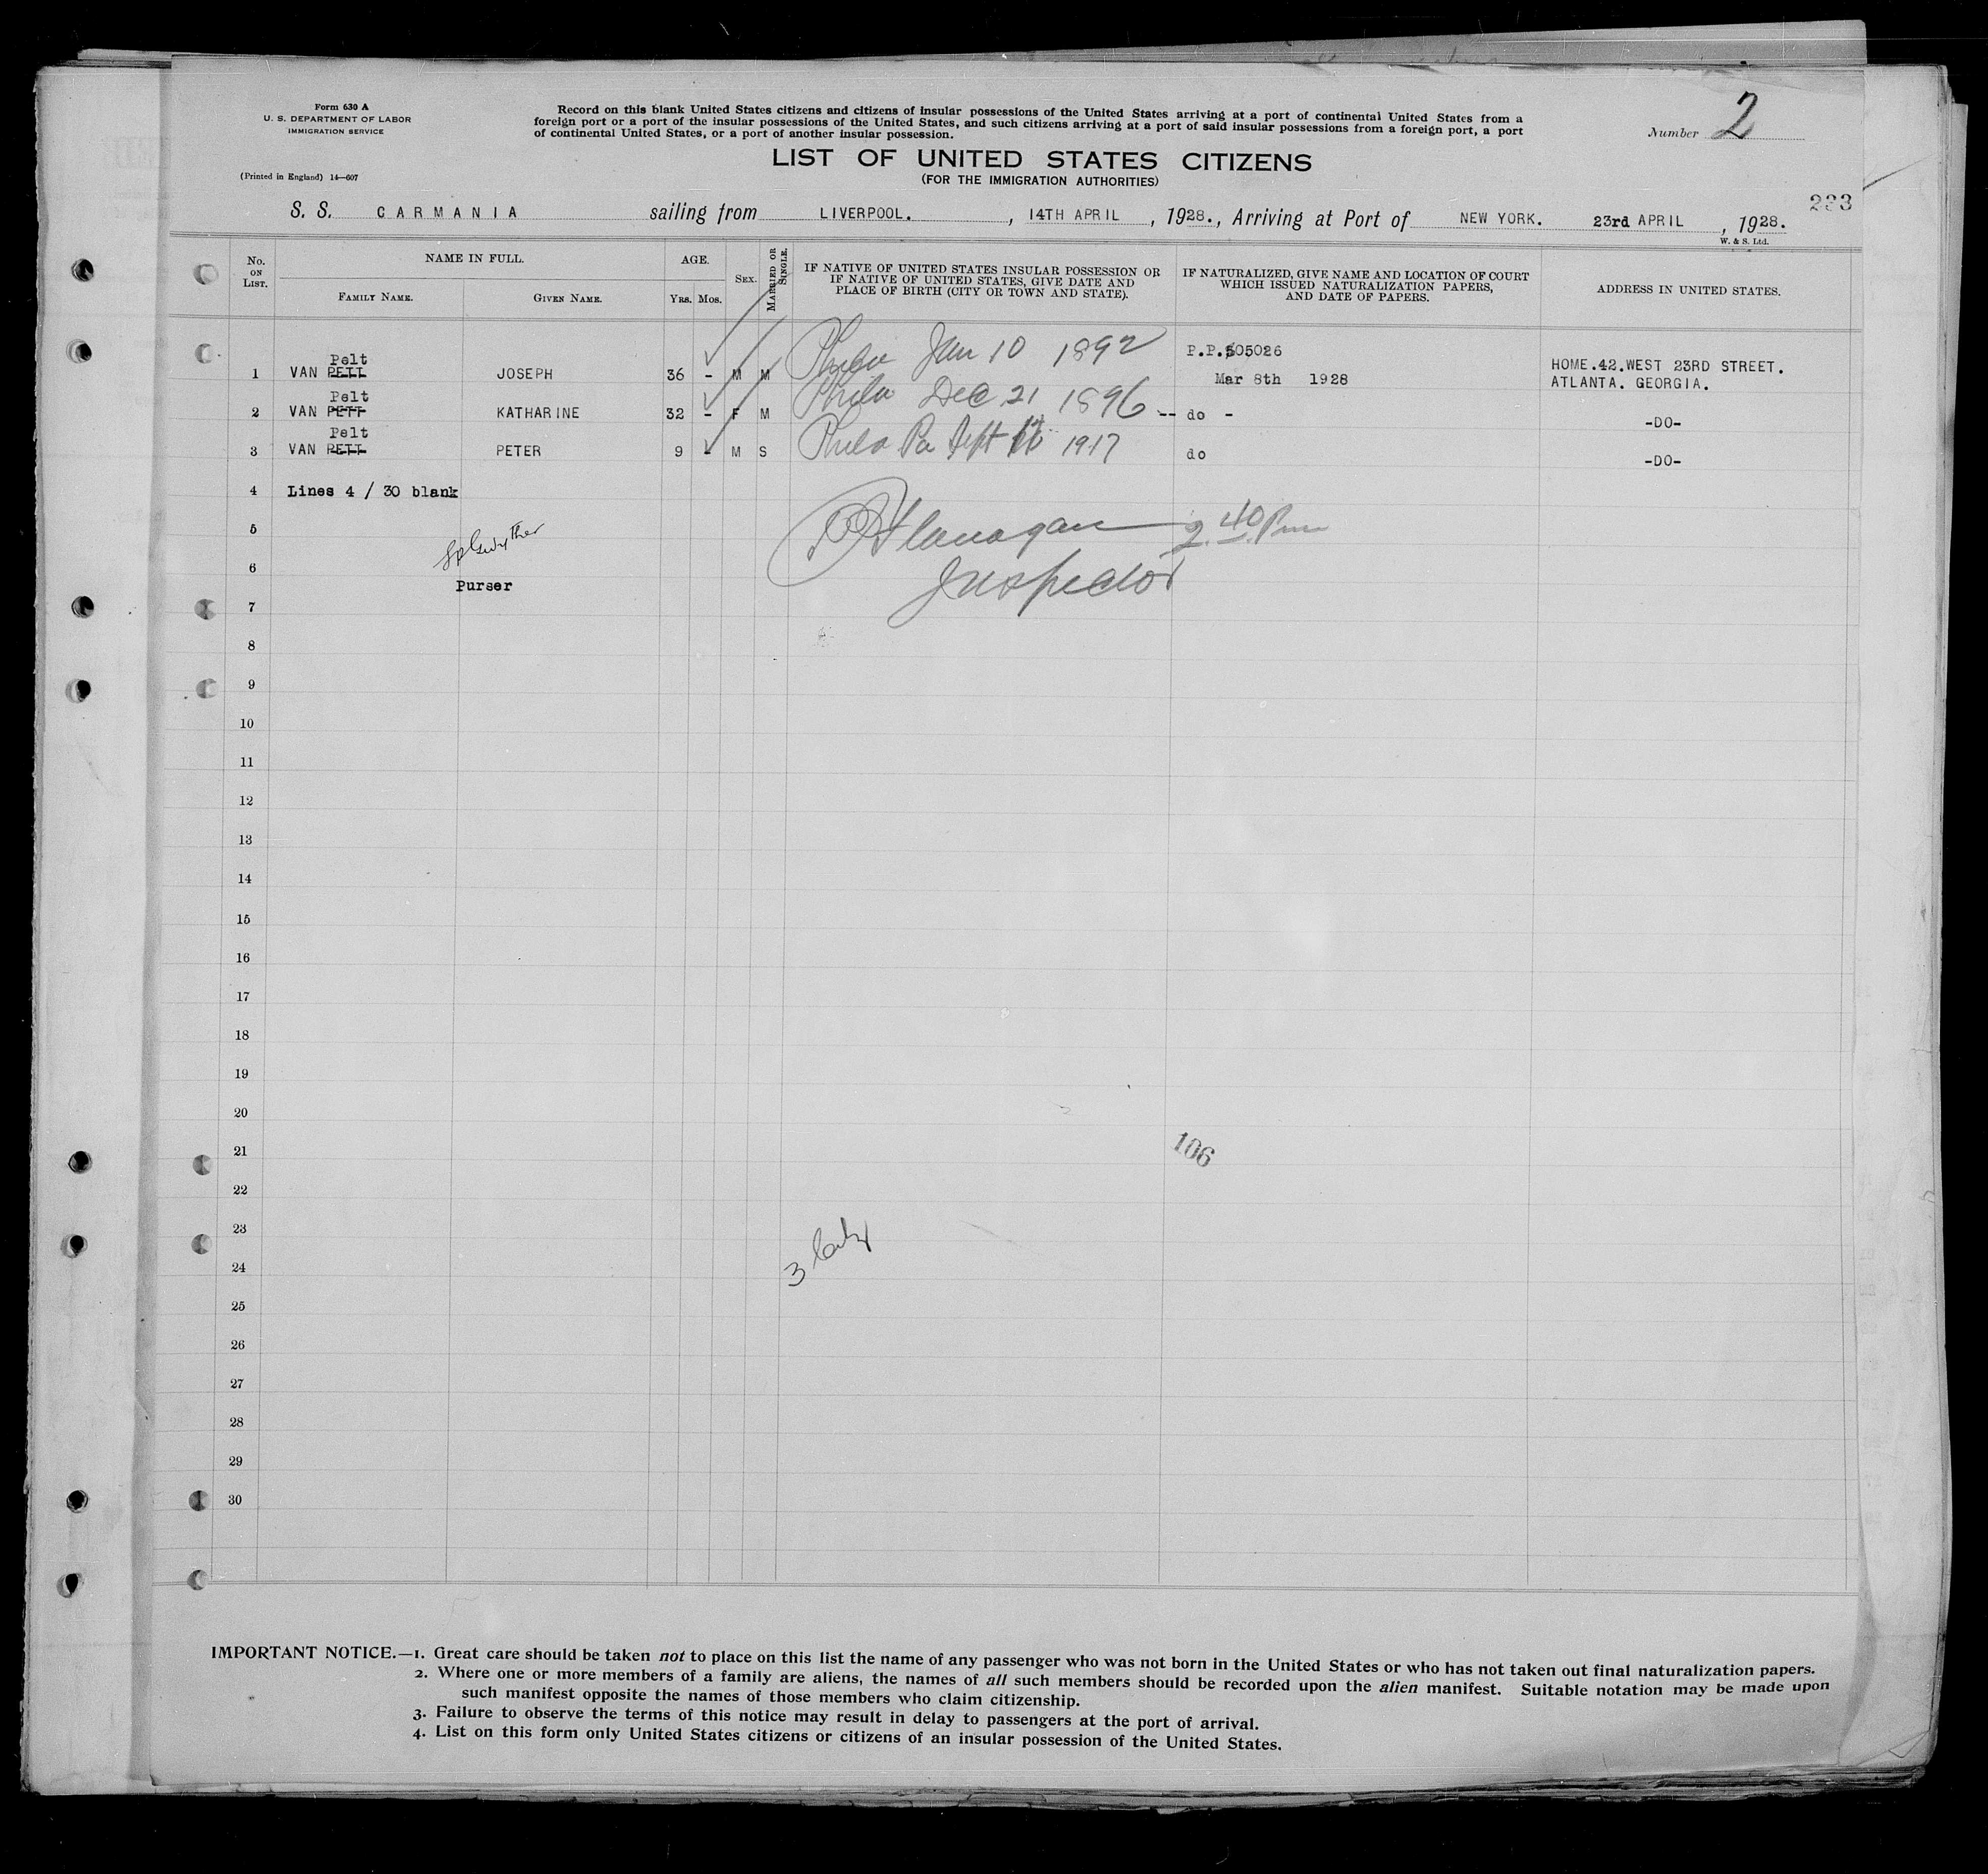 Form 630 A
U. S. DEPARTMENT OF LABOR
IMMIGRATION SERVICE
(Printed in England) 14—607
Record on this blank United States citizens and citizens of insular possessions of the United States arriving at a port of continental United States from a
foreign port or a port of the insular possessions of the United States, and such citizens arriving at a port of said insular possessions from a foreign port, a port
of continental United States, or a port of another insular possession.
Number 2
LIST OF UNITED STATES CITIZENS
(FOR THE IMMIGRATION AUTHORITIES)
233
S. S. CARMANIA sailing from LIVERPOOL. , 14TH APRIL , 1928. , Arriving at Port of NEW YORK. 23rd APRIL , 1928.
W. & S. Ltd.
No. ON LIST.
NAME IN FULL.
FAMILY NAME.
GIVEN NAME.
AGE.
YRS. MOS.
SEX.
MARRIED OR SINGLE.
IF NATIVE OF UNITED STATES INSULAR POSSESSION OR
IF NATIVE OF UNITED STATES, GIVE DATE AND
PLACE OF BIRTH (CITY OR TOWN AND STATE).
IF NATURALIZED, GIVE NAME AND LOCATION OF COURT
WHICH ISSUED NATURALIZATION PAPERS,
AND DATE OF PAPERS.
ADDRESS IN UNITED STATES.
Pelt
1 VAN PETT JOSEPH 36 - M M Phila Jan 10 1892 P.P.505026
Mar 8th 1928
HOME.42.WEST 23RD STREET.
ATLANTA. GEORGIA.
Pelt
2 VAN PETT KATHARINE 32 - F M Phila Dec 21 1896 -- do - -DO-
Pelt
3 VAN PETT PETER 9 - M S Phila Pa Sept 1917 do -DO-
4 Lines 4 / 30 blank
5 Flanagan 2.40 Pm
6 Inspector
Purser
7
8
9
10
11
12
13
14
15
16
17
18
19
20
21 106
22
23
3
24
25
26
27
28
29
30
IMPORTANT NOTICE.—1. Great care should be taken not to place on this list the name of any passenger who was not born in the United States or who has not taken out final naturalization papers.
2. Where one or more members of a family are aliens, the names of all such members should be recorded upon the alien manifest. Suitable notation may be made upon
such manifest opposite the names of those members who claim citizenship.
3. Failure to observe the terms of this notice may result in delay to passengers at the port of arrival.
4. List on this form only United States citizens or citizens of an insular possession of the United States.